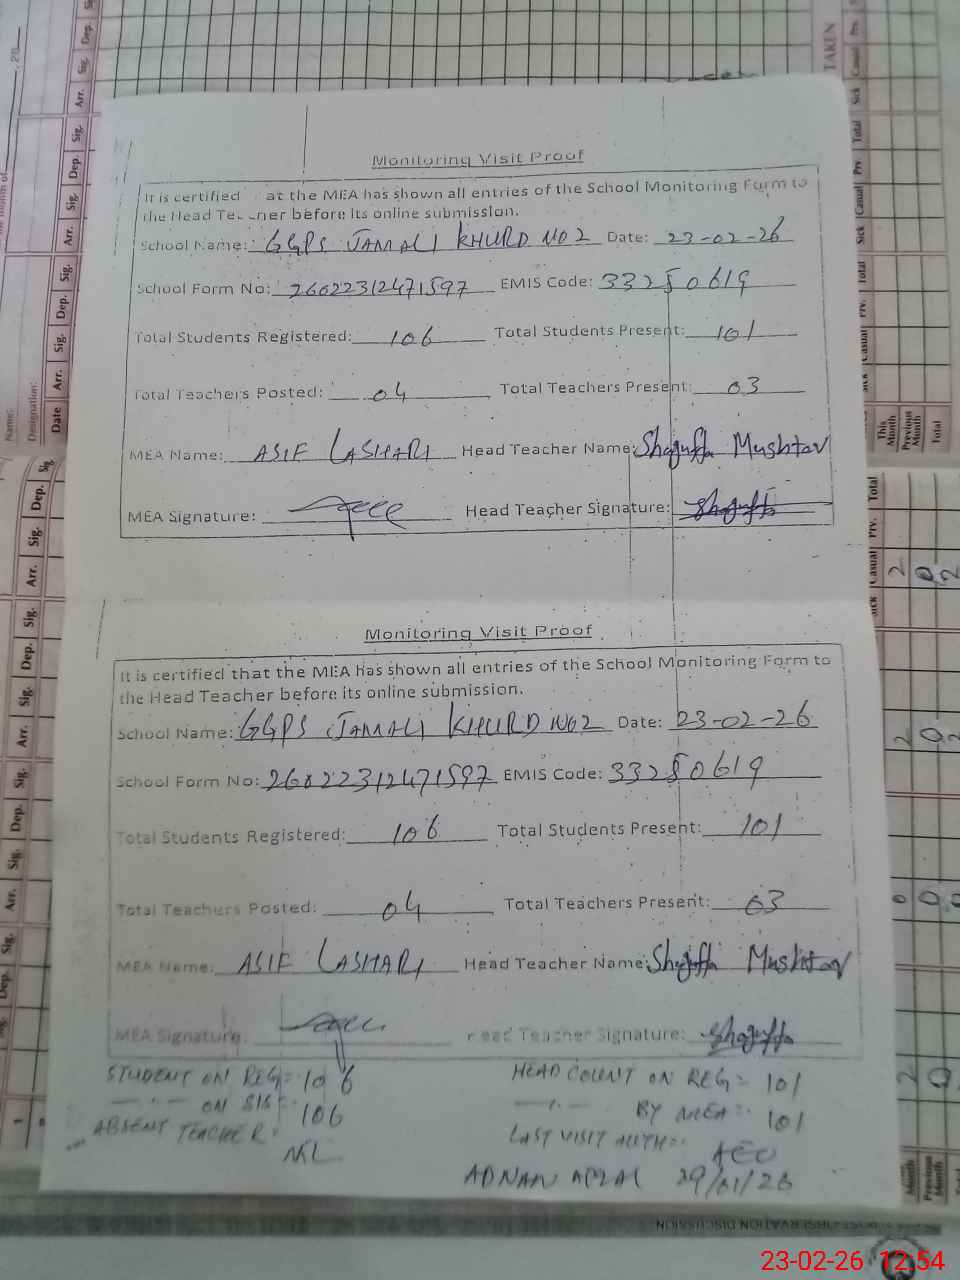 Monitoring Visit Proof
It is certified at the MEA has shown all entries of the School Monitoring Form to
the Head Te ner before its online submission.
School Name: GGPS JAMALI KHURD NO 2 Date: 23-02-26
School Form No: 26022312471597 EMIS Code: 33250619
Total Students Registered: 106 Total Students Present: 101
Total Teachers Posted: 04 Total Teachers Present: 03
MEA Name: ASIF LASHARI Head Teacher Name: Shagufta Mushtaq
MEA Signature: Head Teacher Signature: Shagufta
Monitoring Visit Proof
It is certified that the MEA has shown all entries of the School Monitoring Form to
the Head Teacher before its online submission.
School Name: GGPS JAMALI KHURD NO 2 Date: 23-02-26
School Form No: 26022312471597 EMIS Code: 33250619
Total Students Registered: 106 Total Students Present: 101
Total Teachers Posted: 04 Total Teachers Present: 03
MEA Name: ASIF LASHARI Head Teacher Name: Shagufta Mushtaq
MEA Signature: ead Teacher Signature: Shagufta
STUDENT ON REG = 106 HEAD COUNT ON REG = 101
ON SIS = 106 BY MEA = 101
ABSENT TEACHER: NIL LAST VISIT AUTH = AEO
ADNAN AFZAL 29/01/26
POST OBSERVATION DISCUSSION
23-02-26 12:54